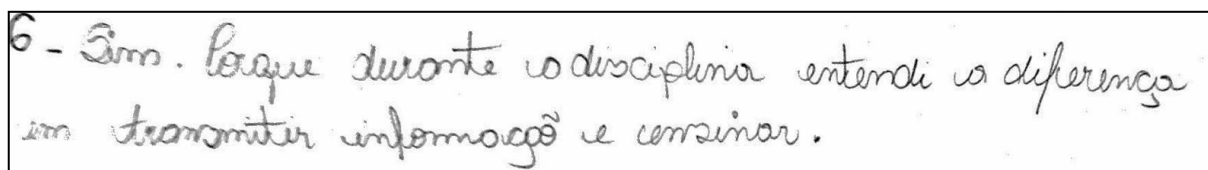 6 - Sim. Porque durante a disciplina entendi a diferença
em transmitir informaçõ e ensinar.